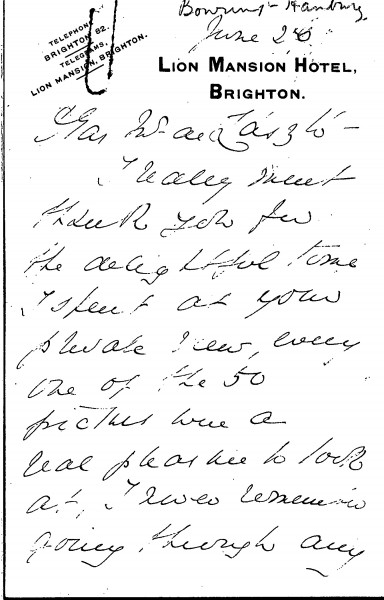 Bowring-Hanbury
June 28
TELEPHONE,
BRIGHTON, 82.
TELEGRAMS,
LION MANSION, BRIGHTON.
LION MANSION HOTEL,
BRIGHTON.
Dear Mr de László -
I really must
thank you for
the delightful time
I spent at your
private view, every
one of the 50
pictures were a
real pleasure to look
at, I never remember
going through any